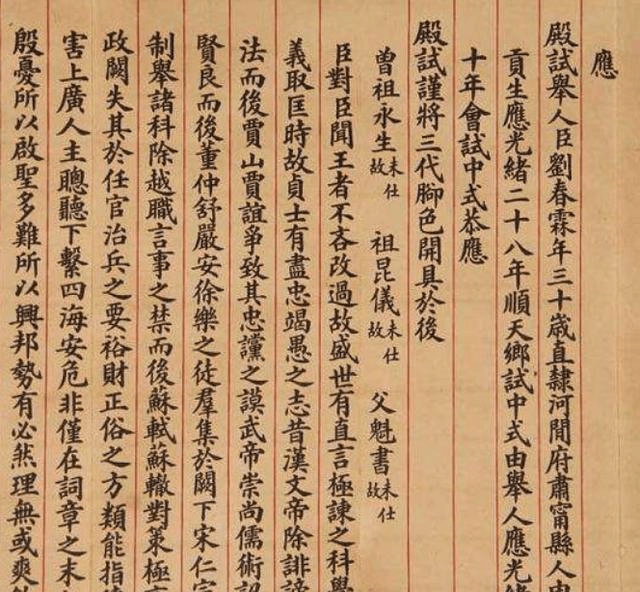 應
殿試舉人臣劉春霖年三十歲直隸河間府肅甯縣人由
貢生應光緒二十八年順天鄉試中式由舉人應光緒
十年會試中式恭應
殿試謹將三代腳色開具於後
曾祖永生未仕故 祖昆儀未仕故 父魁書未仕故
臣對臣聞王者不吝改過故盛世有直言極諫之科學
義取匡時故貞士有盡忠竭愚之志昔漢文帝除誹謗
法而後賈山賈誼爭致其忠讜之謨武帝崇尚儒術
賢良而後董仲舒嚴安徐樂之徒羣集於闕下宋仁宗
制舉諸科除越職言事之禁而後蘇軾蘇轍對策極
政闕失其於任官治兵之要裕財正俗之方類能指
害上廣人主聰聽下繫四海安危非僅在詞章之末
殷憂所以啟聖多難所以興邦勢有必然理無或爽